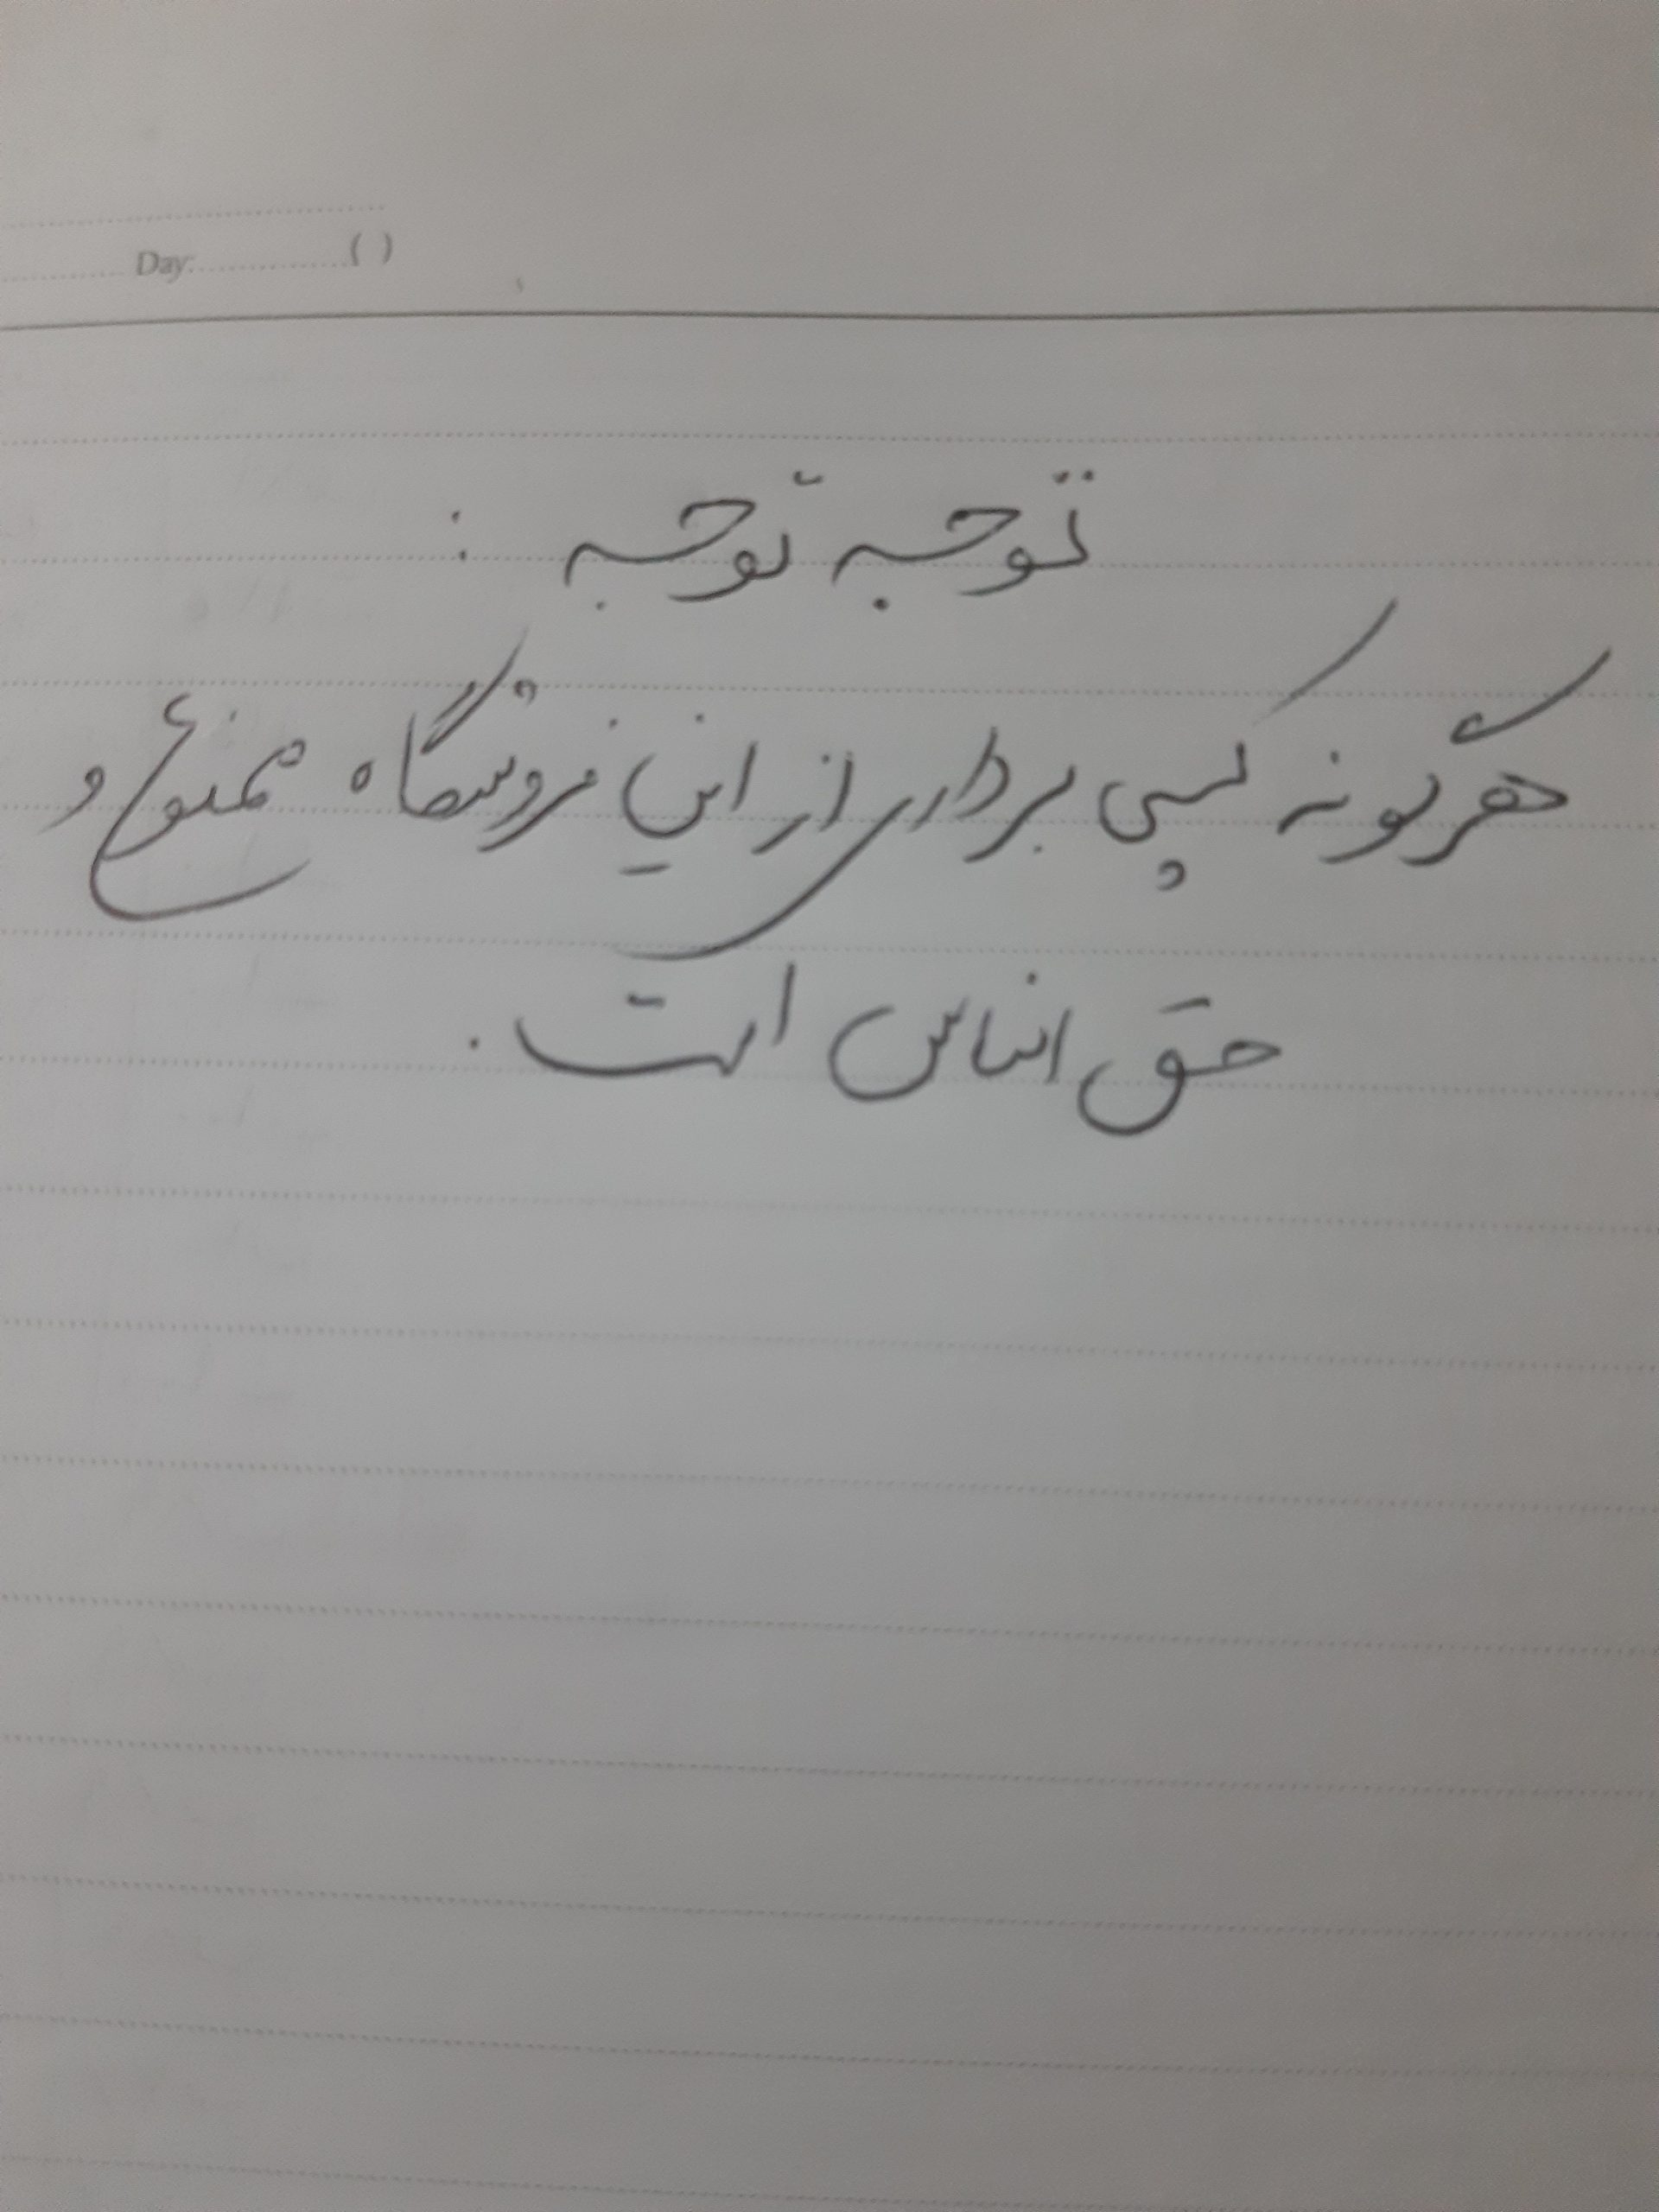 Day: ( )
توجه توجه :
هرگونه کپی برداری از این فروشگاه ممنوع و
حق الناس است .